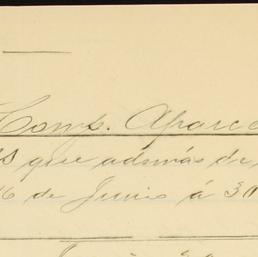 Comp. Aparce
que además de
6 de Junio á 30